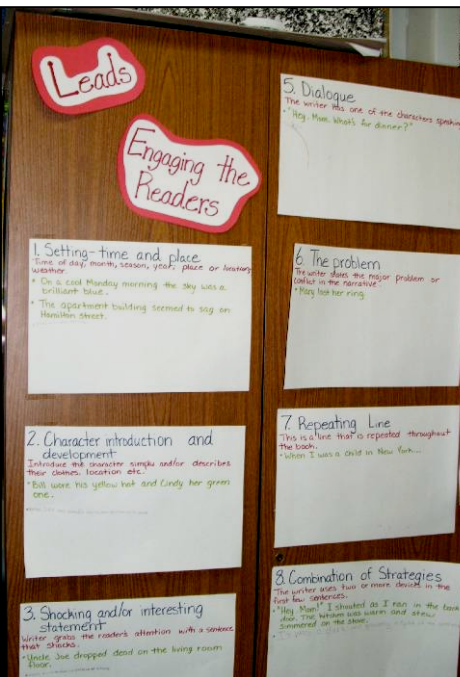 Leads
Engaging the
Readers
1. Setting-time and place
Time of day, month, season, year, place or location,
weather.
• On a cool Monday morning the sky was a
brilliant blue.
• The apartment building seemed to sag on
Hamilton Street.
2. Character introduction and
development
Introduce the character simply and/or describes
their clothes, location etc.
• Bill wore his yellow hat and Cindy her green
one.
3. Shocking and/or interesting
statement
Writer grabs the reader's attention with a sentence
that shocks.
• Uncle Joe dropped dead on the living room
floor.
5. Dialogue
The writer has one of the characters speaking
• "Hey, Mum. What's for dinner?"
6. The problem
The writer shares the major problem or
conflict in the narrative.
• Mary lost her ring.
7. Repeating Line
This is a line that is repeated throughout
the book.
• When I was a child in New York...
8. Combination of Strategies
The writer uses two or more devices in the
first few sentences.
• "Hey Mum!" I shouted as I ran in the back
door. The kitchen was warm and stew
simmered on the stove.